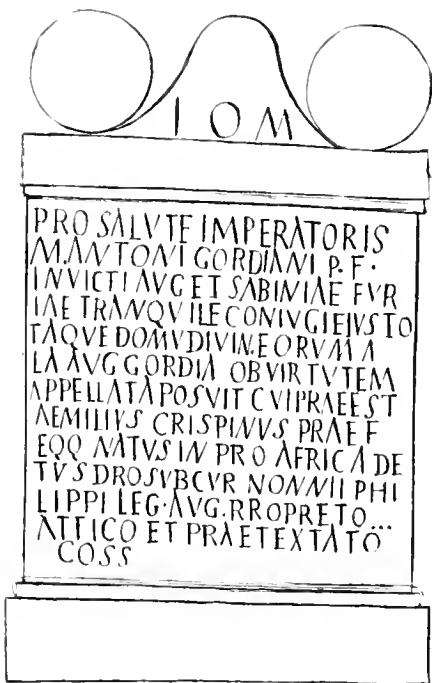 I O M
PRO SALVTE IMPERATORIS
M. ANTONI GORDIANI P. F.
INVICTI AVG ET SABINIAE FVR
IAE TRANQVILE CONIVGI EIVSTO
TAQVE DOMV DIVIN. EORVM A
LA AVG GORDIA OB VIRTVTEM
APPELLATA POSVIT CVI PRAEEST
AEMILIVS CRISPINVS PRAEF
EQQ NATVS IN PRO AFRICA DE
TVSDRO SVB CVR NONNII PHI
LIPPI LEG. AVG. RROPRETO...
ATTICO ET PRAETEXTATO
COSS